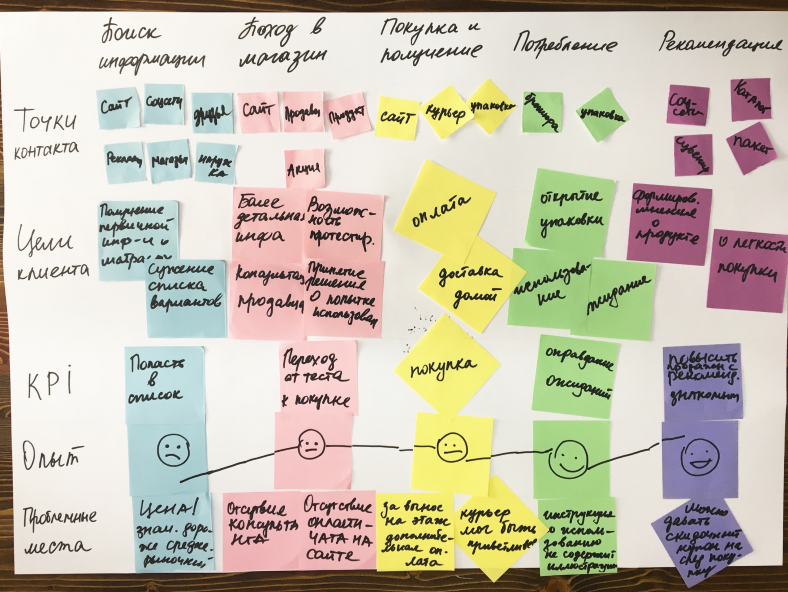 Поиск
информации
Поход в
магазин
Покупка и
получение
Потребление
Рекомендация
Точки
контакта
Сайт
Соцсети
друзья
Реклама
магазин
наруж
ка
Сайт
Продавец
Продукт
Акция
сайт
курьер
упаковка
брошюра
упаковка
Соц-
сети
Каталог
сувенир
пакет
Цели
клиента
Получение
первичной
инф-и о
Сужение
списка
вариантов
Более
детальная
инфа
Возмож-
ность
протестир.
продавца
Принятие
решения
о попытке
использован
оплата
доставка
домой
открытие
упаковки
использова-
ние
ожидание
формиров.
мнения
о
продукте
о легкости
покупки
KPi
Попасть
в
список
Переход
от теста
к покупке
покупка
оправдание
ожиданий
повысить
рекоменд.
знакомым
Опыт
Проблемные
места
ЦЕНА!
знач. доро-
же средне-
рыночн
Отсутствие
консульта
нта
Отсутствие
онлайн-
чата на
сайте
за вынос
на этаж
дополните-
льная оп-
лата
курьер
мог быть
приветливее
инструкция
о исполь-
зованию
не содержит
иллюстраций
можно
давать
купон на
след поку-
пку